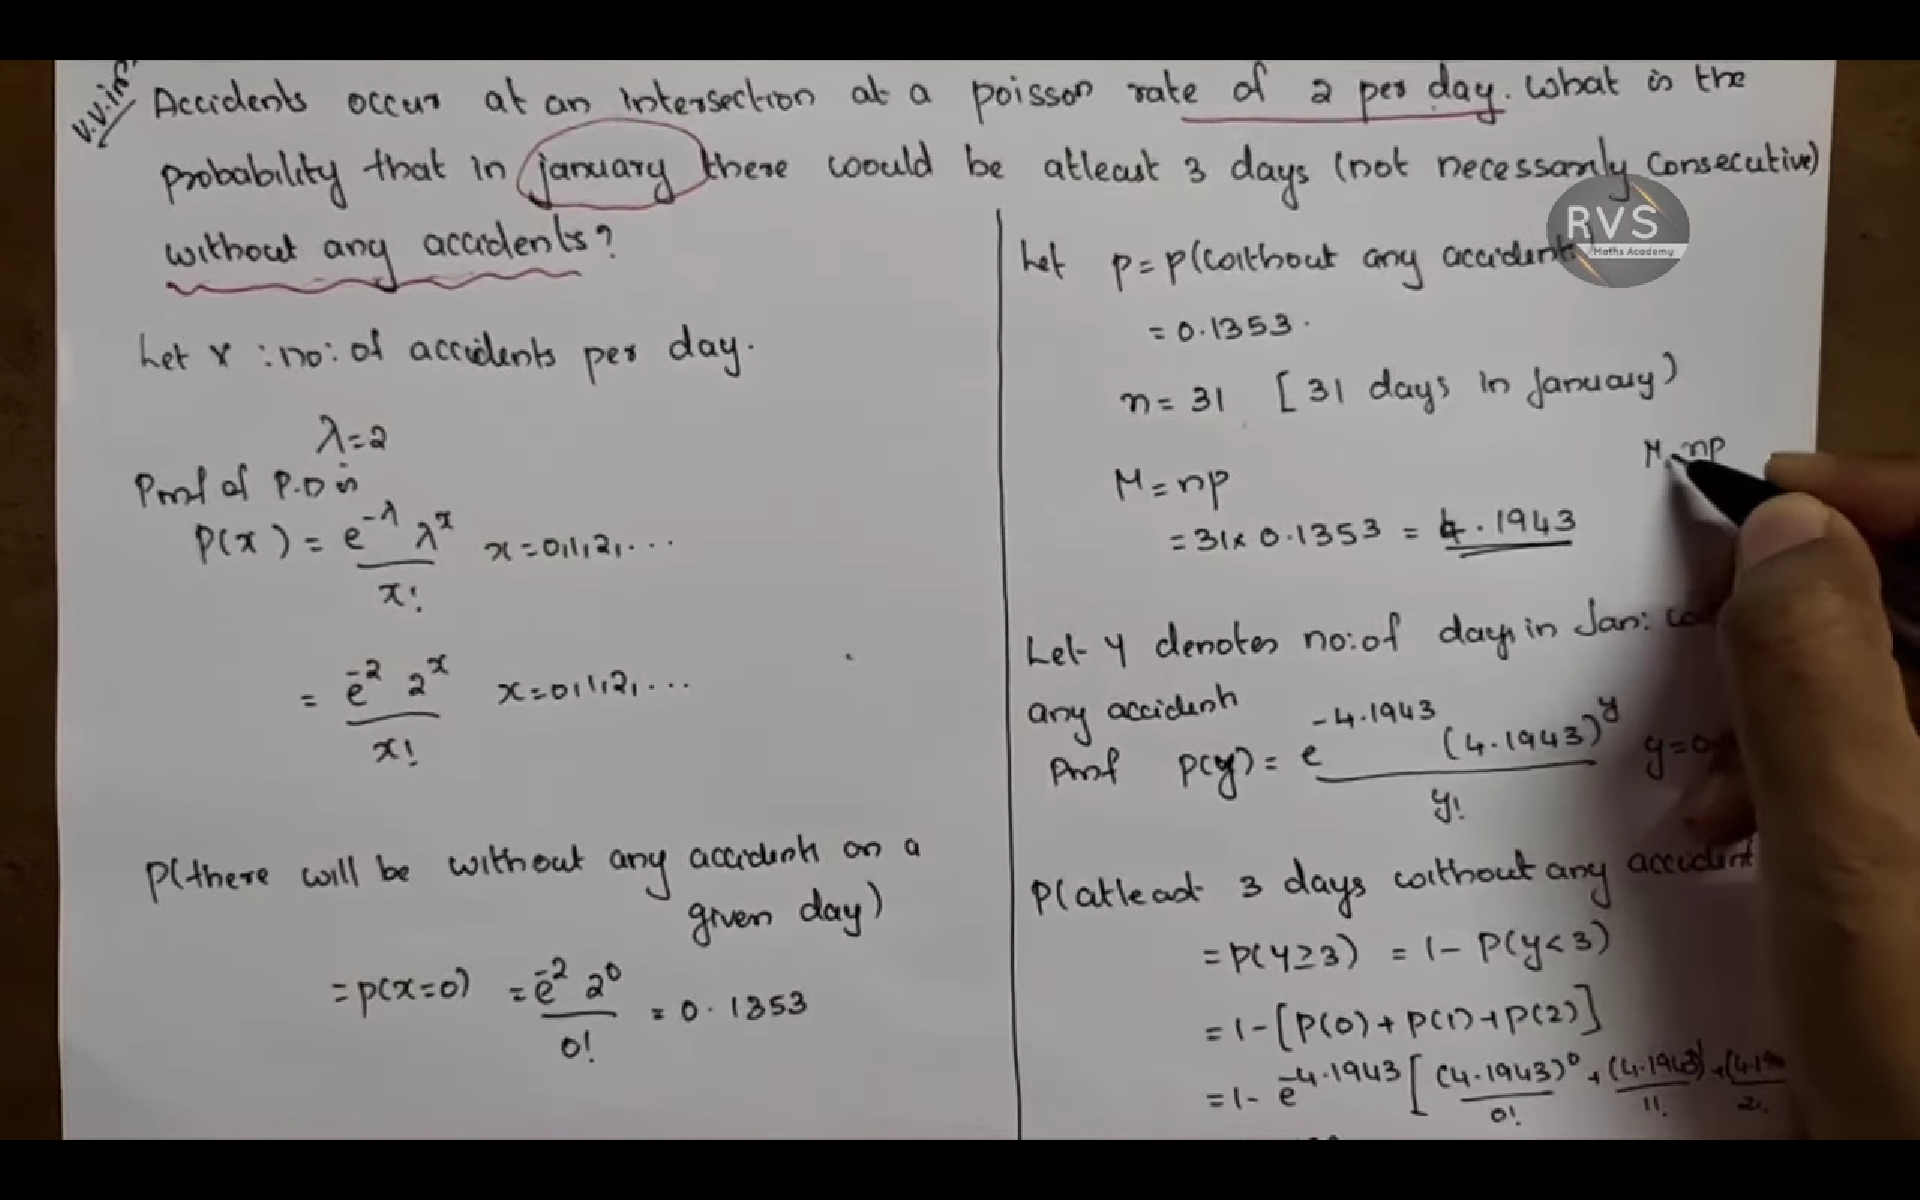 V.V.imp
Accidents occur at an intersection at a poisson rate of 2 per day. What is the
probability that in january there would be atleast 3 days (not necessarily consecutive)
without any accidents?
Let x : no: of accidents per day.
λ=2
Pmf of P.D is
P(x) = e^-λ λ^x / x! x=0,1,2,...
= e^-2 2^x / x! x=0,1,2,...
P(there will be without any accident on a
given day)
=p(x=0) = e^-2 2^0 / 0! = 0.1353
RVS
Maths Academy
Let p = p(without any accident
= 0.1353.
n = 31 [31 days in january)
M = np
M = np
= 31x 0.1353 = 4.1943
Let Y denotes no: of days in Jan:
any accident
Pmf p(y) = e^-4.1943 (4.1943)^y / y! y=0
P(atleast 3 days without any accident
= P(Y≥3) = 1- P(y<3)
= 1-[P(0)+P(1)+P(2)]
= 1- e^-4.1943 [ (4.1943)^0 / 0! + (4.1943)^1 / 1! + (4.19 / 2!